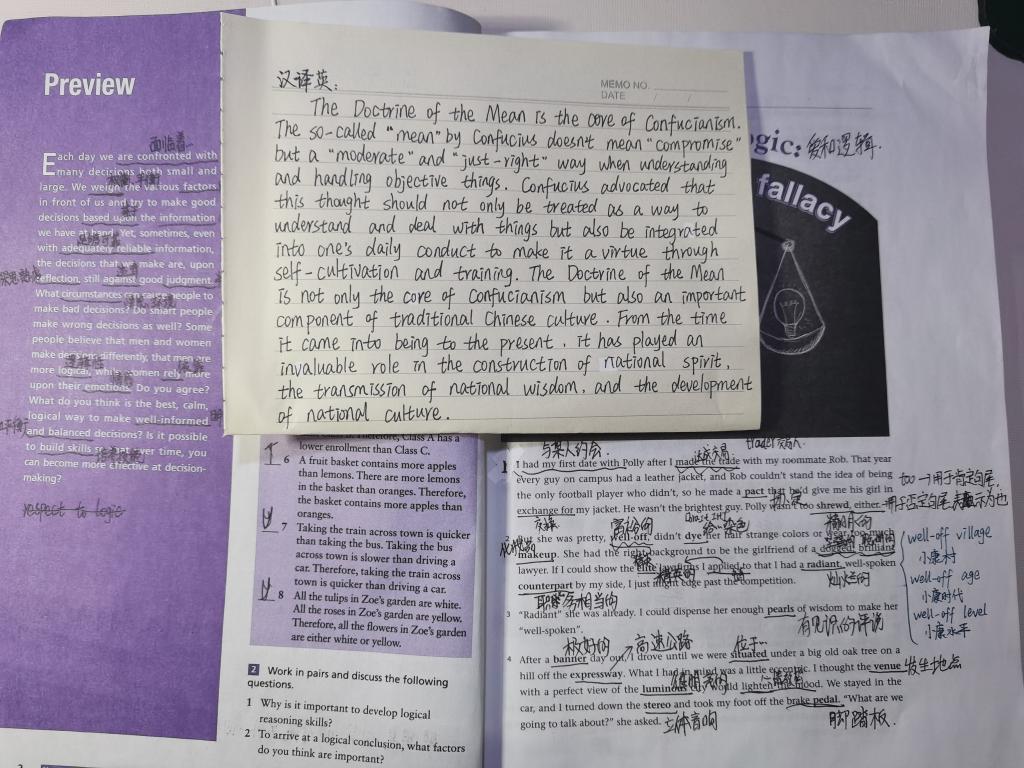 Preview
面临着
Each day we are confronted with
many decisions both small and
large. We weigh the various factors
in front of us and try to make good
decisions based upon the information
we have at hand. Yet, sometimes, even
with adequately reliable information,
the decisions that we make are, upon
reflection, still against good judgment.
What circumstances can cause people to
make bad decisions? Do smart people
make wrong decisions as well? Some
people believe that men and women
make decisions differently, that men are
more logical, while women rely more
upon their emotions. Do you agree?
What do you think is the best, calm,
logical way to make well-informed
and balanced decisions? Is it possible
to build skills so that over time, you
can become more effective at decision-
making?
respect to logic
汉译英:
MEMO NO.
DATE / /
The Doctrine of the Mean is the core of Confucianism.
The so-called "mean" by Confucius doesn't mean "compromise"
but a "moderate" and "just-right" way when understanding
and handling objective things. Confucius advocated that
this thought should not only be treated as a way to
understand and deal with things but also be integrated
into one's daily conduct to make it a virtue through
self-cultivation and training. The Doctrine of the Mean
is not only the core of Confucianism but also an important
component of traditional Chinese culture. From the time
it came into being to the present, it has played an
invaluable role in the construction of national spirit,
the transmission of national wisdom, and the development
of national culture.
ogic:
逻辑.
fallacy
Therefore, Class A has a
lower enrollment than Class C.
6 A fruit basket contains more apples
than lemons. There are more lemons
in the basket than oranges. Therefore,
the basket contains more apples than
oranges.
7 Taking the train across town is quicker
than taking the bus. Taking the bus
across town is slower than driving a
car. Therefore, taking the train across
town is quicker than driving a car.
8 All the tulips in Zoe's garden are white.
All the roses in Zoe's garden are yellow.
Therefore, all the flowers in Zoe's garden
are either white or yellow.
2 Work in pairs and discuss the following
questions.
1 Why is it important to develop logical
reasoning skills?
2 To arrive at a logical conclusion, what factors
do you think are important?
与某人约会
达成交易
1 I had my first date with Polly after I made the trade with my roommate Rob. That year
every guy on campus had a leather jacket, and Rob couldn't stand the idea of being
the only football player who didn't, so he made a pact that he'd give me his girl in
exchange for my jacket. He wasn't the brightest guy. Polly wasn't too shrewd, either.
too 一用于肯定句尾
交换
富裕的
染色
she was pretty, well-off, didn't dye her hair strange colors or wear too much
makeup. She had the right background to be the girlfriend of a dogged, brilliant
lawyer. If I could show the elite law firms I applied to that I had a radiant, well-spoken
counterpart by my side, I just might edge past the competition.
灿烂的
职务相当的
well-off village
小康村
well-off age
小康时代
well-off level
小康水平
3 "Radiant" she was already. I could dispense her enough pearls of wisdom to make her
"well-spoken".
有见识的评说
极好的
高速公路
位于…
4 After a banner day out, I drove until we were situated under a big old oak tree on a
hill off the expressway. What I had in mind was a little eccentric. I thought the venue
发生地点
with a perfect view of the luminous city would lighten the mood. We stayed in the
car, and I turned down the stereo and took my foot off the brake pedal. "What are we
going to talk about?" she asked.
立体音响
脚踏板.